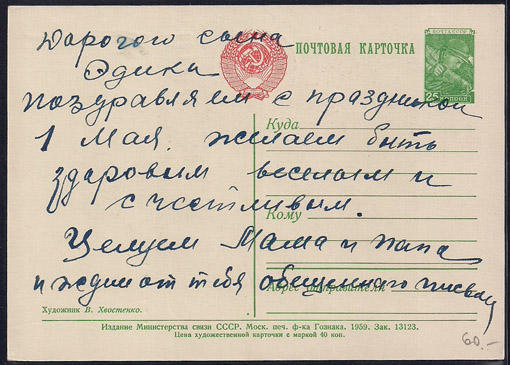 Дорогого сына
ПОЧТОВАЯ КАРТОЧКА
ПОЧТА СССР
25 КОП
Эдика
поздравляем с праздником
Куда
1 Мая. желаем быть
здоровым веселым и
счастливым.
Кому
Целуем Мама и папа
и ждем от тебя обещанного письма
Адрес отправителя
Художник В. Хвостенко.
Издание Министерства связи СССР. Моск. печ. ф-ка Гознака. 1959. Зак. 13123.
Цена художественной карточки с маркой 40 коп.
60.-